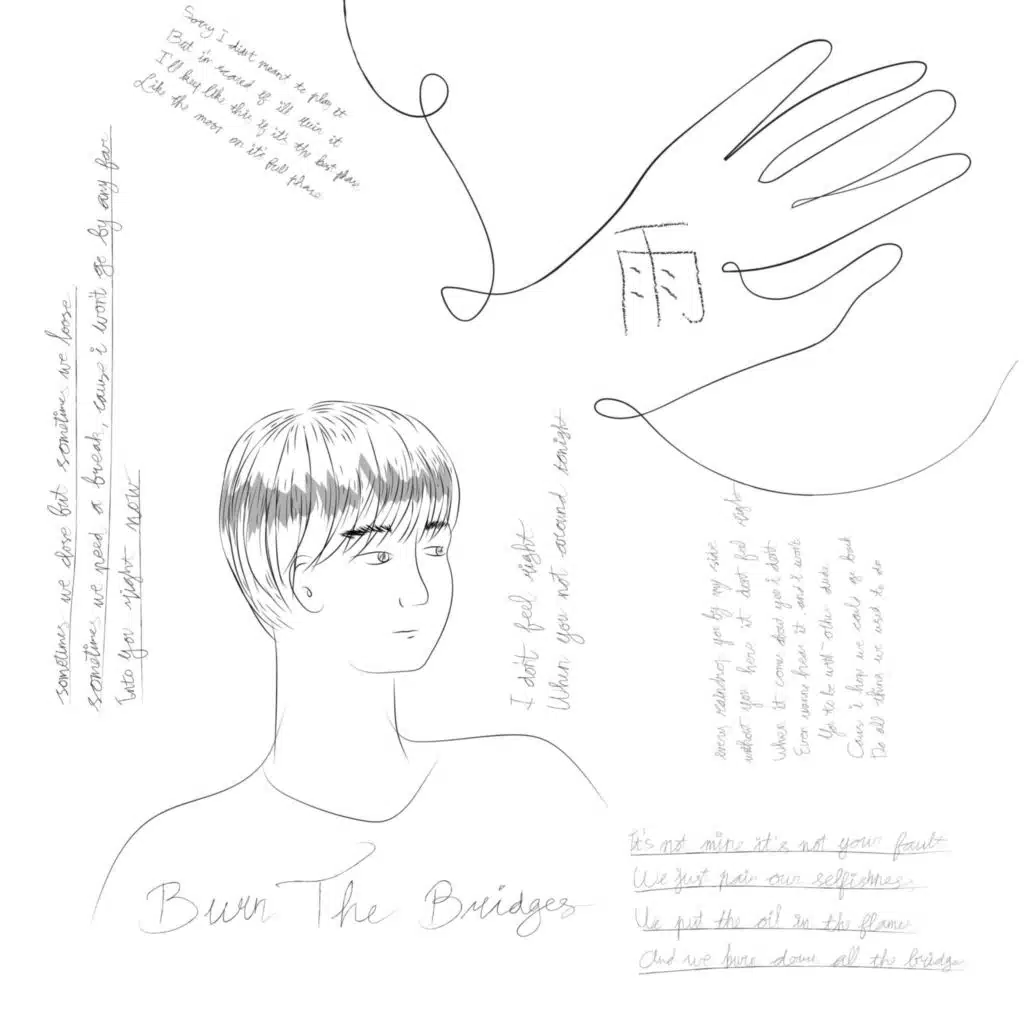 Sorry I didn't meant to play it
But i'm scared if ill ruin it
I'll keep like this if it's the best phase
Like the moon on it's full phase
雨
sometimes we close but sometimes we loose
sometimes we need a break, cause i won't go by any far
Into you right now
I don't feel right
When you not around tonight
every raindrop you by my side
without you here it don't feel right
When it come about you i don't
Even wanna hear it and i won't
You to be with other dude
Caus i hope we could go back
Do all thing we used to do
Burn The Bridges
It's not mine it's not your fault
We just pair our selfishness
We put the oil in the flame
And we burn down all the bridge